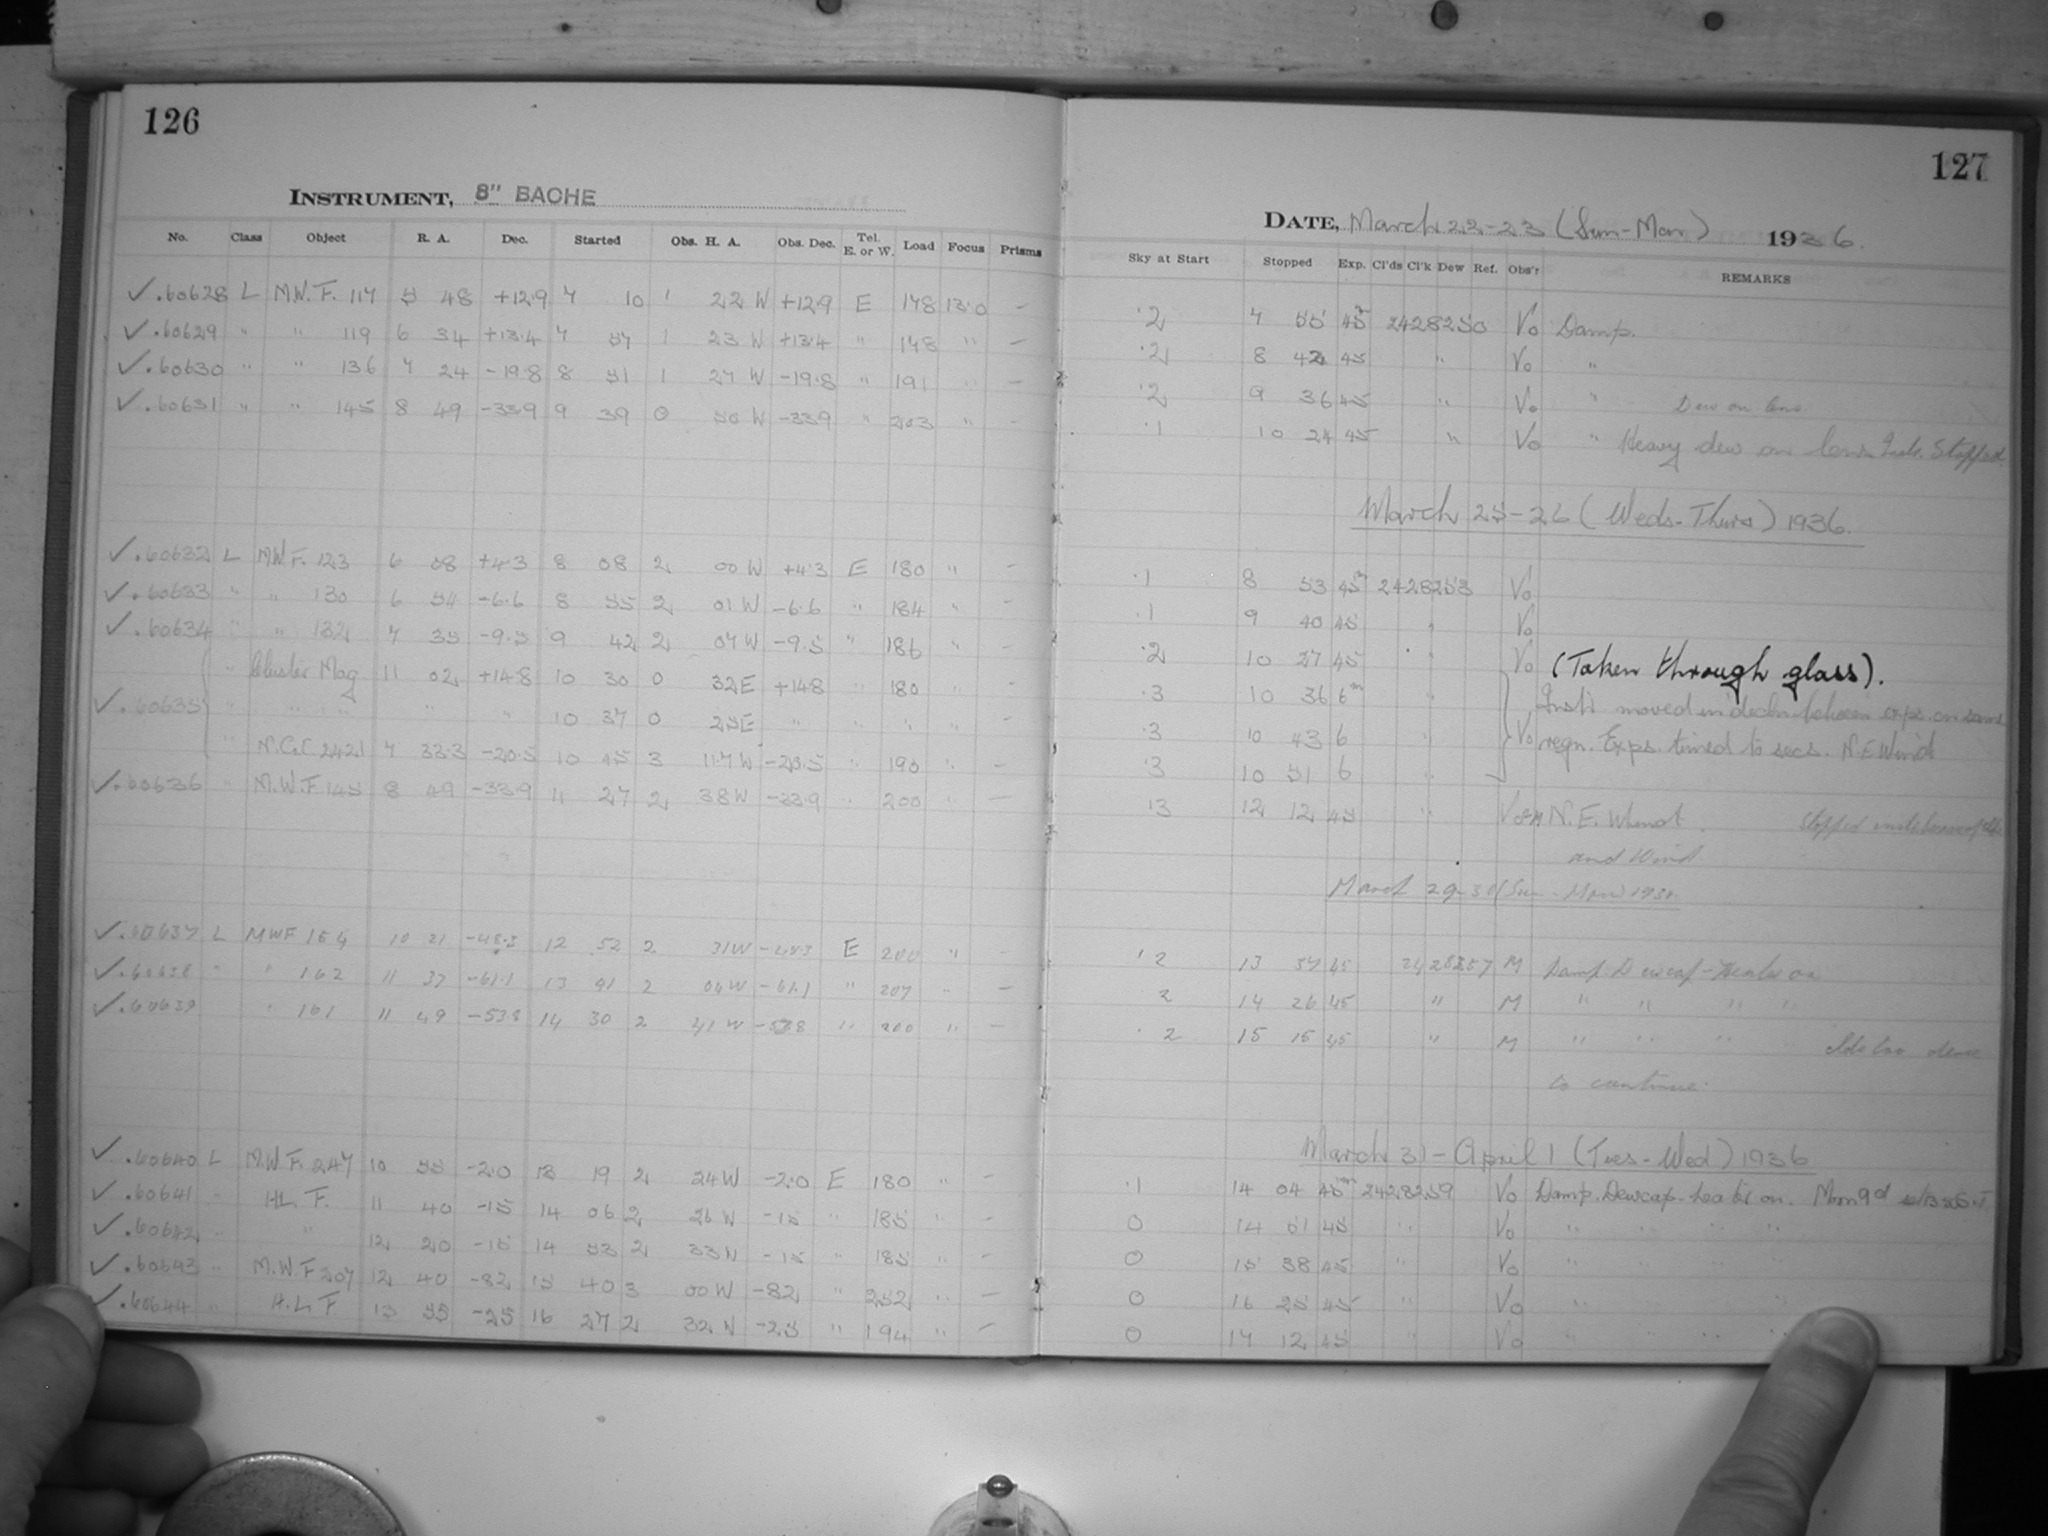 126
INSTRUMENT, 8" BACHE
No. Class Object R. A. Dec. Started Obs. H. A. Obs. Dec. Tel. E. or W. Load Focus Prisms
✓.60628 L M.W.F. 117 5 48 +12.9 7 10 1 22 W +12.9 E 178 13.0 —
✓.60629 " " 119 6 34 +13.4 7 57 1 23 W +13.4 " 178 " —
✓.60630 " " 136 7 24 -19.8 8 51 1 27 W -19.8 " 191 " —
✓.60631 " " 145 8 49 -33.9 9 39 0 50 W -33.9 " 203 " —
✓.60632 L M.W.F. 123 6 08 +4.3 8 08 2 00 W +4.3 E 180 " —
✓.60633 " " 130 6 54 -6.6 8 55 2 01 W -6.6 " 184 " —
✓.60634 " " 132 7 35 -9.5 9 42 2 07 W -9.5 " 186 " —
" Cluster Mag 11 02 +14.8 10 30 0 32 E +14.8 " 180 " —
✓.60635 " " " " " 10 37 0 25 E " " " " —
" N.G.C. 2421 7 33.3 -20.5 10 45 3 11.7 W -20.5 " 190 " —
✓.60636 " M.W.F 145 8 49 -33.9 11 27 2 38 W -33.9 " 200 " —
✓.60637 L MWF 164 10 21 -48.3 12 52 2 31 W -48.3 E 200 " —
✓.60638 " " 162 11 37 -61.1 13 41 2 04 W -61.1 " 207 " —
✓.60639 " 161 11 49 -53.8 14 30 2 41 W -53.8 " 200 " —
✓.60640 L M.W.F. 247 10 55 -2.0 13 19 2 24 W -2.0 E 180 " —
✓.60641 " H.L.F. 11 40 -15 14 06 2 26 W -15 " 185 " —
✓.60642 " " 12 20 -15 14 53 2 33 W -15 " 185 " —
✓.60643 " M.W.F 207 12 40 -82 15 40 3 00 W -82 " 252 " —
✓.60644 " H.L.F 13 55 -25 16 27 2 32 W -25 " 194 " —
127
DATE, March 22-23 (Sun-Mon) 1936.
Sky at Start Stopped Exp. Cl'ds Cl'k Dew Ref. Obs'r REMARKS
.2 7 55 45m 2428250 Vo Damp.
.2 8 42 45 " Vo "
.2 9 36 45 " Vo " Dew on lens
.1 10 24 45 " Vo " Heavy dew on lens. Stopped.
March 25-26 (Weds-Thurs) 1936.
.1 8 53 45m 2428253 Vo
.1 9 40 45 " Vo
.2 10 27 45 " Vo (Taken through glass).
.3 10 36 6m " Instr moved in decln between exps. on same
.3 10 43 6 " Vo regn. Exps. timed to secs. N.E Wind
.3 10 51 6 "
.3 12 12 45 " Vo&M N.E. Wind. Stopped
and Wind
March 29-30 (Sun - Mon) 1936.
.2 13 37 45 2428257 M Damp Dewcap-Heater on
2 14 26 45 " M " " " "
.2 15 15 45 " M " " " too dense
to continue.
March 31-April 1 (Tues-Wed) 1936
.1 14 04 45m 2428259 Vo Damp. Dewcap-heater on. Moon 9d
0 14 51 45 " Vo " " " "
0 15 38 45 " Vo " " " "
0 16 25 45 " Vo " "
0 17 12 45 " Vo " " " "